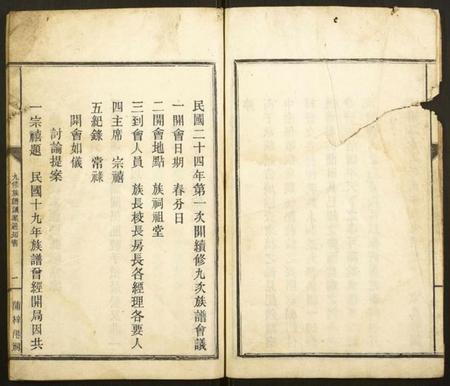 民國二十四年第一次開續修九次族譜會議
一開會日期　春分日
二開會地點　族祠祖堂
三到會人員　族長校長房長各經理各要人
四主席　宗禧
五紀錄　常祿
開會如儀
討論提案
一宗禧題　民國十九年族譜曾經開局因共
九修族譜議案通知書
一
蒲梓